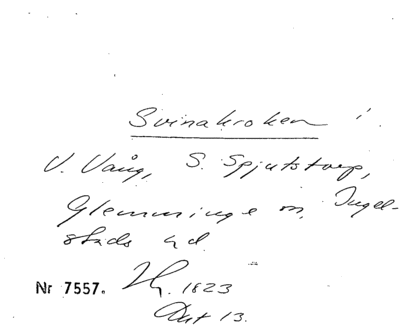 Svinakroken i
V. Vång, S. Spjutstorp,
Glemminge o, Ingel-
stads hd
Nr 7557. 1823
Akt 13.